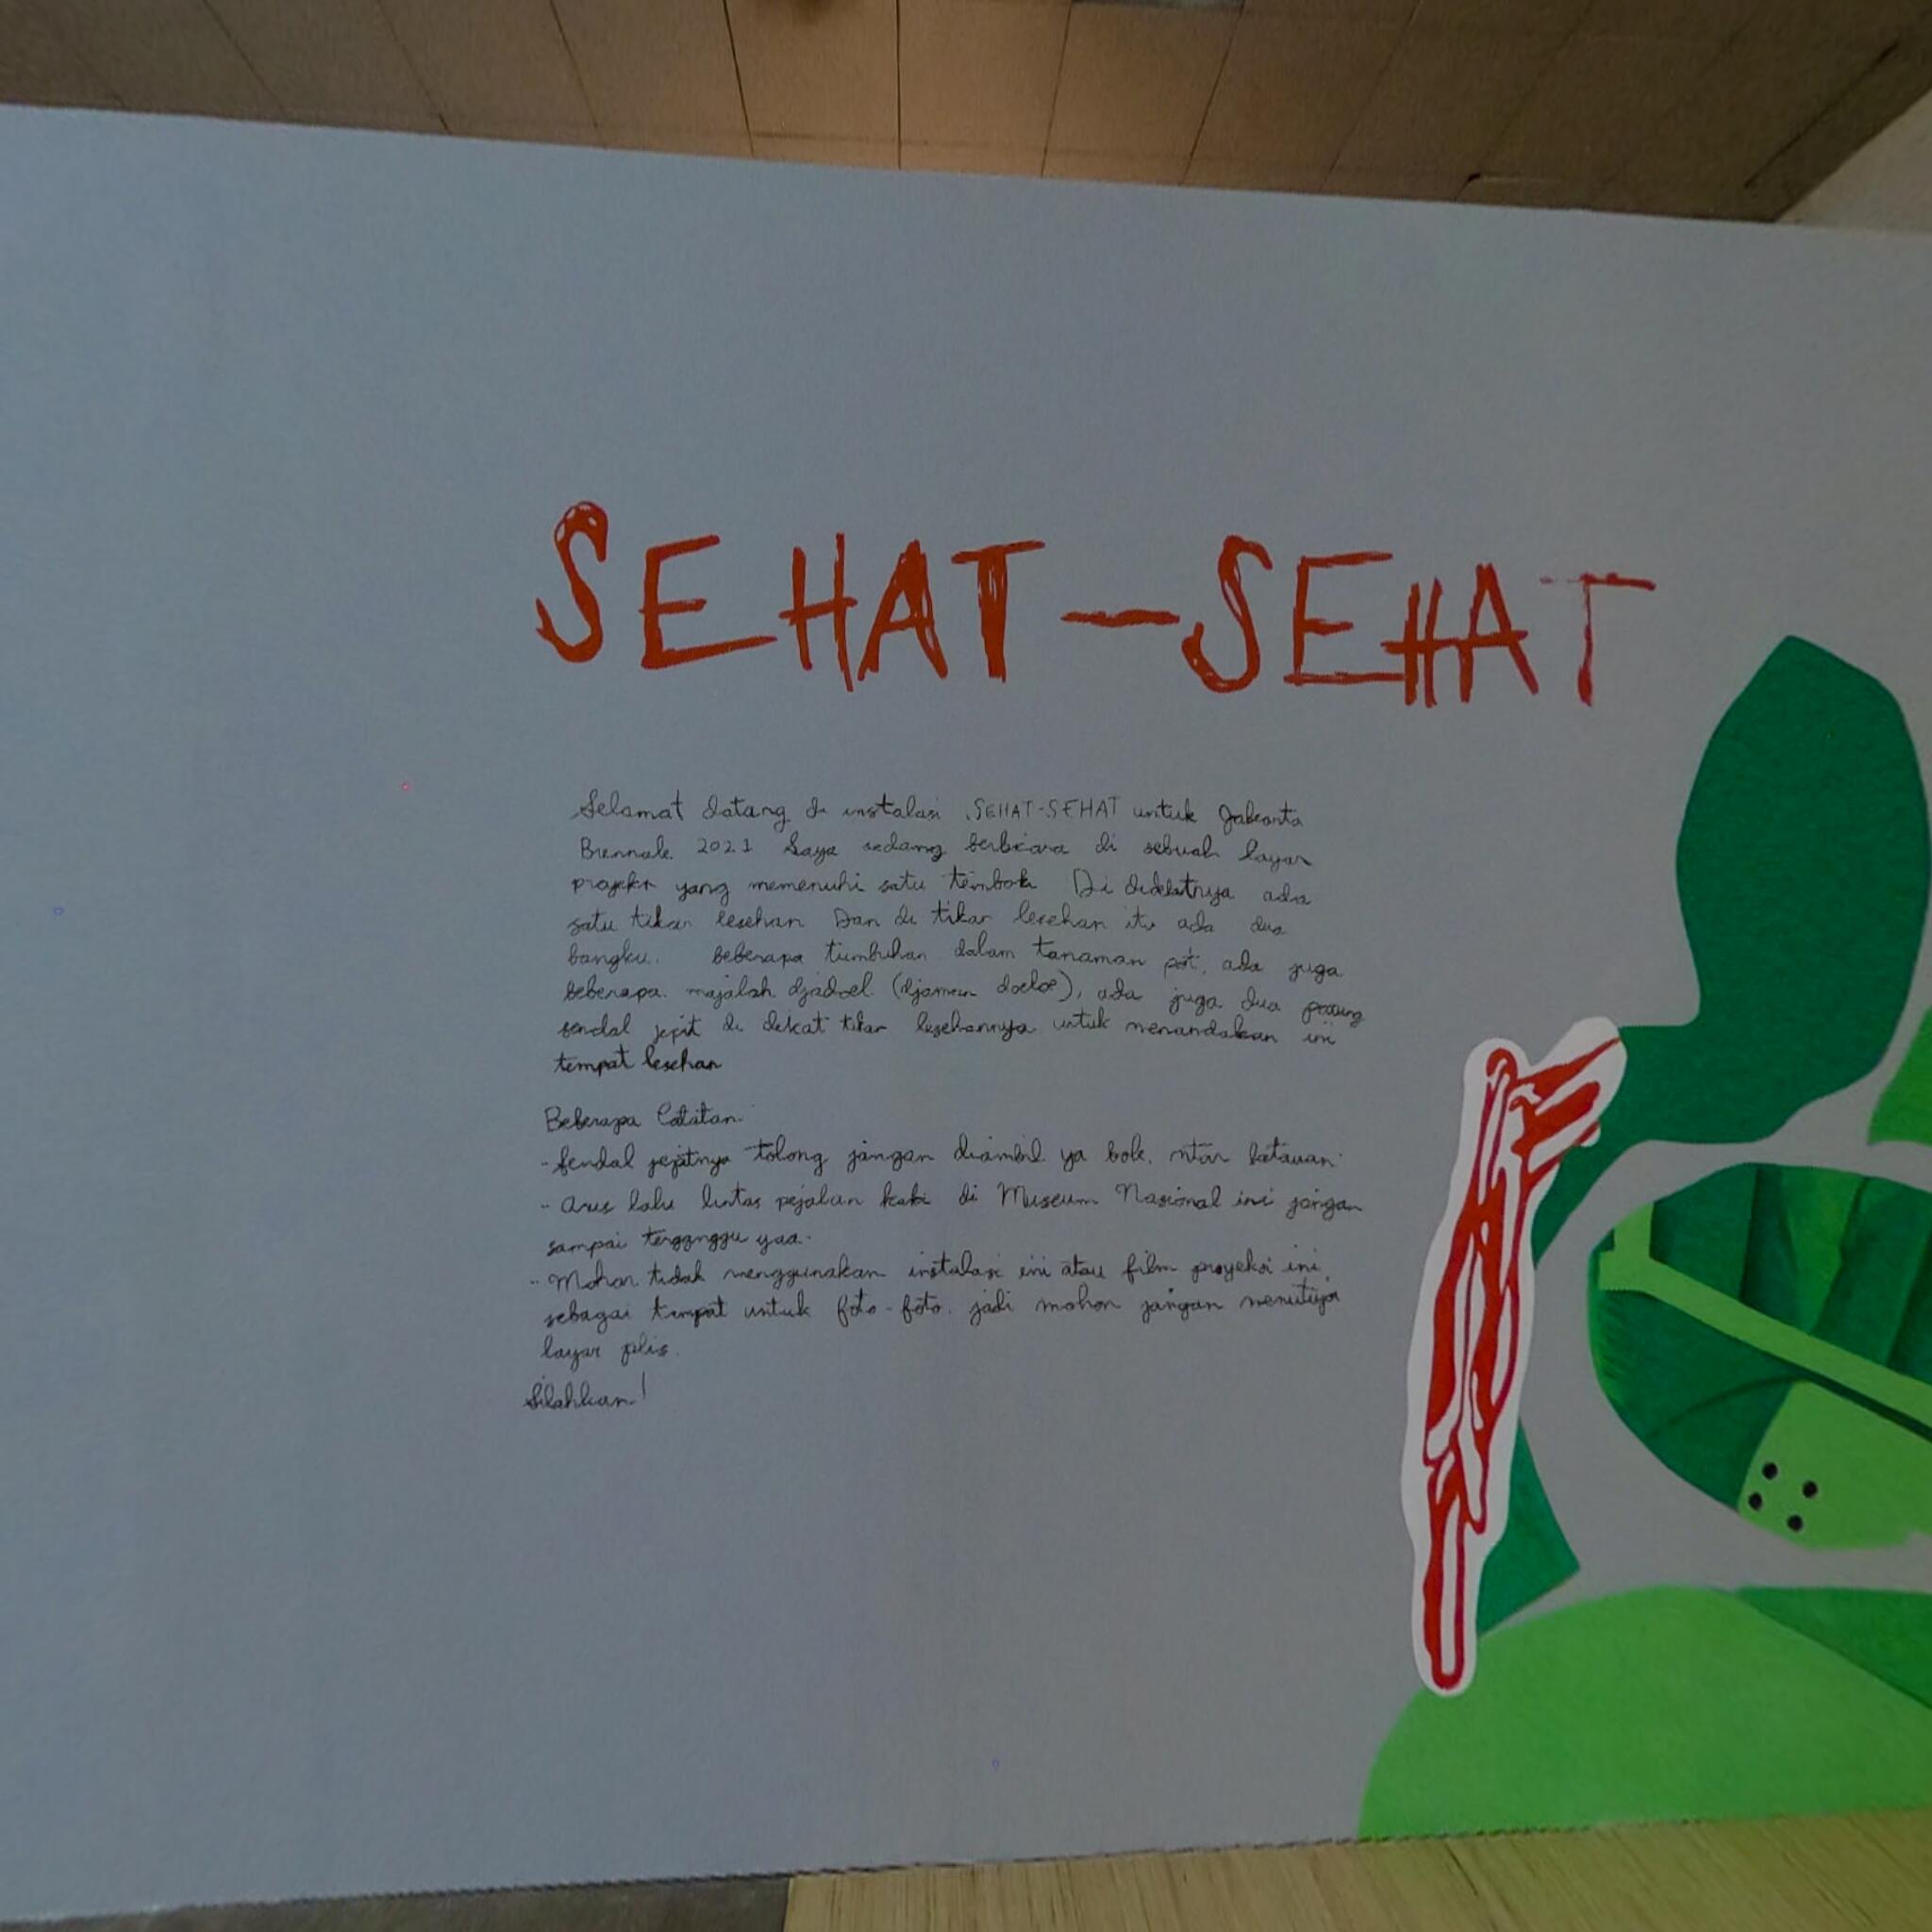 SEHAT-SEHAT
Selamat datang di instalasi SEHAT-SEHAT untuk Jakarta
Biennale 2021 Saya sedang berbicara di sebuah layar
projektr yang memenuhi satu tembok Di didekatnya ada
satu tikar lesehan Dan di tikar lesehan itu ada dua
bangku. beberapa tumbuhan dalam tanaman pot, ada juga
beberapa majalah djadoel (djaman doeloe), ada juga dua
sendal jepit di dekat tikar lesehannya untuk menandakan ini
tempat lesehan
Beberapa Catatan
- Sendal jepitnya tolong jangan diambil ya bole, ntar ketauan
- Arus lalu lintas pejalan kaki di Museum Nasional ini jangan
sampai terganggu yaa.
- Mohon tidak menggunakan instalasi ini atau film proyeksi ini
sebagai tempat untuk foto-foto. jadi mohon jangan menutupi
layar plis.
Silahkan!